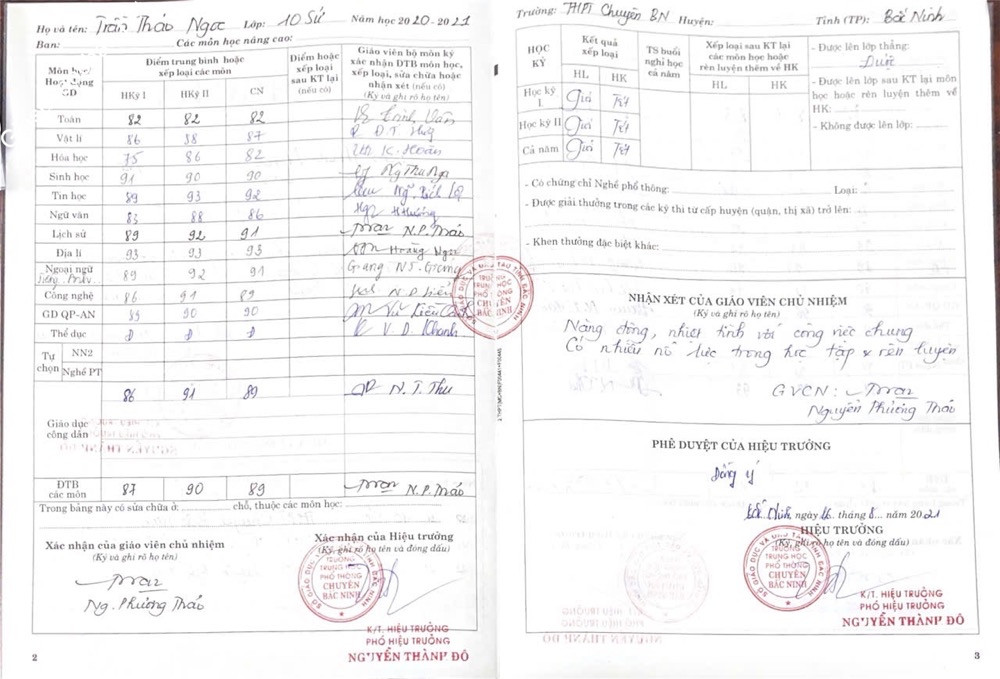 Họ và tên: Trần Thảo Ngọc Lớp: 10 Sử Năm học 2020-2021
Ban: Các môn học nâng cao:
Môn học/ Hoạt động GD | Điểm trung bình hoặc xếp loại các môn | Điểm hoặc xếp loại sau KT lại (nếu có) | Giáo viên bộ môn ký xác nhận ĐTB môn học, xếp loại, sửa chữa hoặc nhận xét (nếu có) (Ký và ghi rõ họ tên)
HKỳ I HKỳ II CN
Toán 82 82 82
Vật lí 86 88 87 Đ.T Huệ
Hóa học 75 86 82 K. Hoàn
Sinh học 91 90 90 Ng Thu Nga
Tin học 89 93 92 Ng. Bích
Ngữ văn 83 88 86 H Hương
Lịch sử 89 92 91 N.P. Thảo
Địa lí 93 93 93 Hoàng Ngọc
Ngoại ngữ 89 92 91 Giang
Công nghệ 86 91 89
GD QP-AN 89 90 90
Thể dục Đ Đ Đ V.D. Khanh
Tự chọn NN2
Nghề PT
86 91 89 N.T. Thu
Giáo dục công dân
ĐTB các môn 87 90 89 N.P. Thảo
Trong bảng này có sửa chữa ở: chỗ, thuộc các môn học:
Xác nhận của giáo viên chủ nhiệm
(Ký và ghi rõ họ tên)
Ng. Phương Thảo
Xác nhận của Hiệu trưởng
(Ký, ghi rõ họ tên và đóng dấu)
SỞ GIÁO DỤC VÀ ĐÀO TẠO TỈNH BẮC NINH
TRƯỜNG
TRUNG HỌC
PHỔ THÔNG
CHUYÊN
BẮC NINH
K/T. HIỆU TRƯỞNG
PHÓ HIỆU TRƯỞNG
NGUYỄN THÀNH ĐÔ
2
Trường: THPT Chuyên BN Huyện: Tỉnh (TP): Bắc Ninh
HỌC KỲ | Kết quả xếp loại | TS buổi nghỉ học cả năm | Xếp loại sau KT lại các môn học hoặc rèn luyện thêm về HK
HL HK HL HK
Học kỳ I. Giỏi Tốt
Học kỳ II Giỏi Tốt
Cả năm Giỏi Tốt
- Được lên lớp thẳng:
Được
- Được lên lớp sau KT lại môn học hoặc rèn luyện thêm về HK:
- Không được lên lớp:
- Có chứng chỉ Nghề phổ thông: Loại:
- Được giải thưởng trong các kỳ thi từ cấp huyện (quận, thị xã) trở lên:
- Khen thưởng đặc biệt khác:
SỞ GIÁO DỤC VÀ ĐÀO TẠO TỈNH BẮC NINH
TRƯỜNG
TRUNG HỌC
PHỔ THÔNG
CHUYÊN
BẮC NINH
NHẬN XÉT CỦA GIÁO VIÊN CHỦ NHIỆM
(Ký và ghi rõ họ tên)
Năng động, nhiệt tình với công việc chung
Có nhiều nỗ lực trong học tập & rèn luyện
GVCN:
Nguyễn Phương Thảo
PHÊ DUYỆT CỦA HIỆU TRƯỞNG
Đồng ý
Bắc Ninh, ngày 16 tháng 8 năm 2021
HIỆU TRƯỞNG
(Ký, ghi rõ họ tên và đóng dấu)
SỞ GIÁO DỤC VÀ ĐÀO TẠO TỈNH BẮC NINH
TRƯỜNG
TRUNG HỌC
PHỔ THÔNG
CHUYÊN
BẮC NINH
K/T. HIỆU TRƯỞNG
PHÓ HIỆU TRƯỞNG
NGUYỄN THÀNH ĐÔ
3